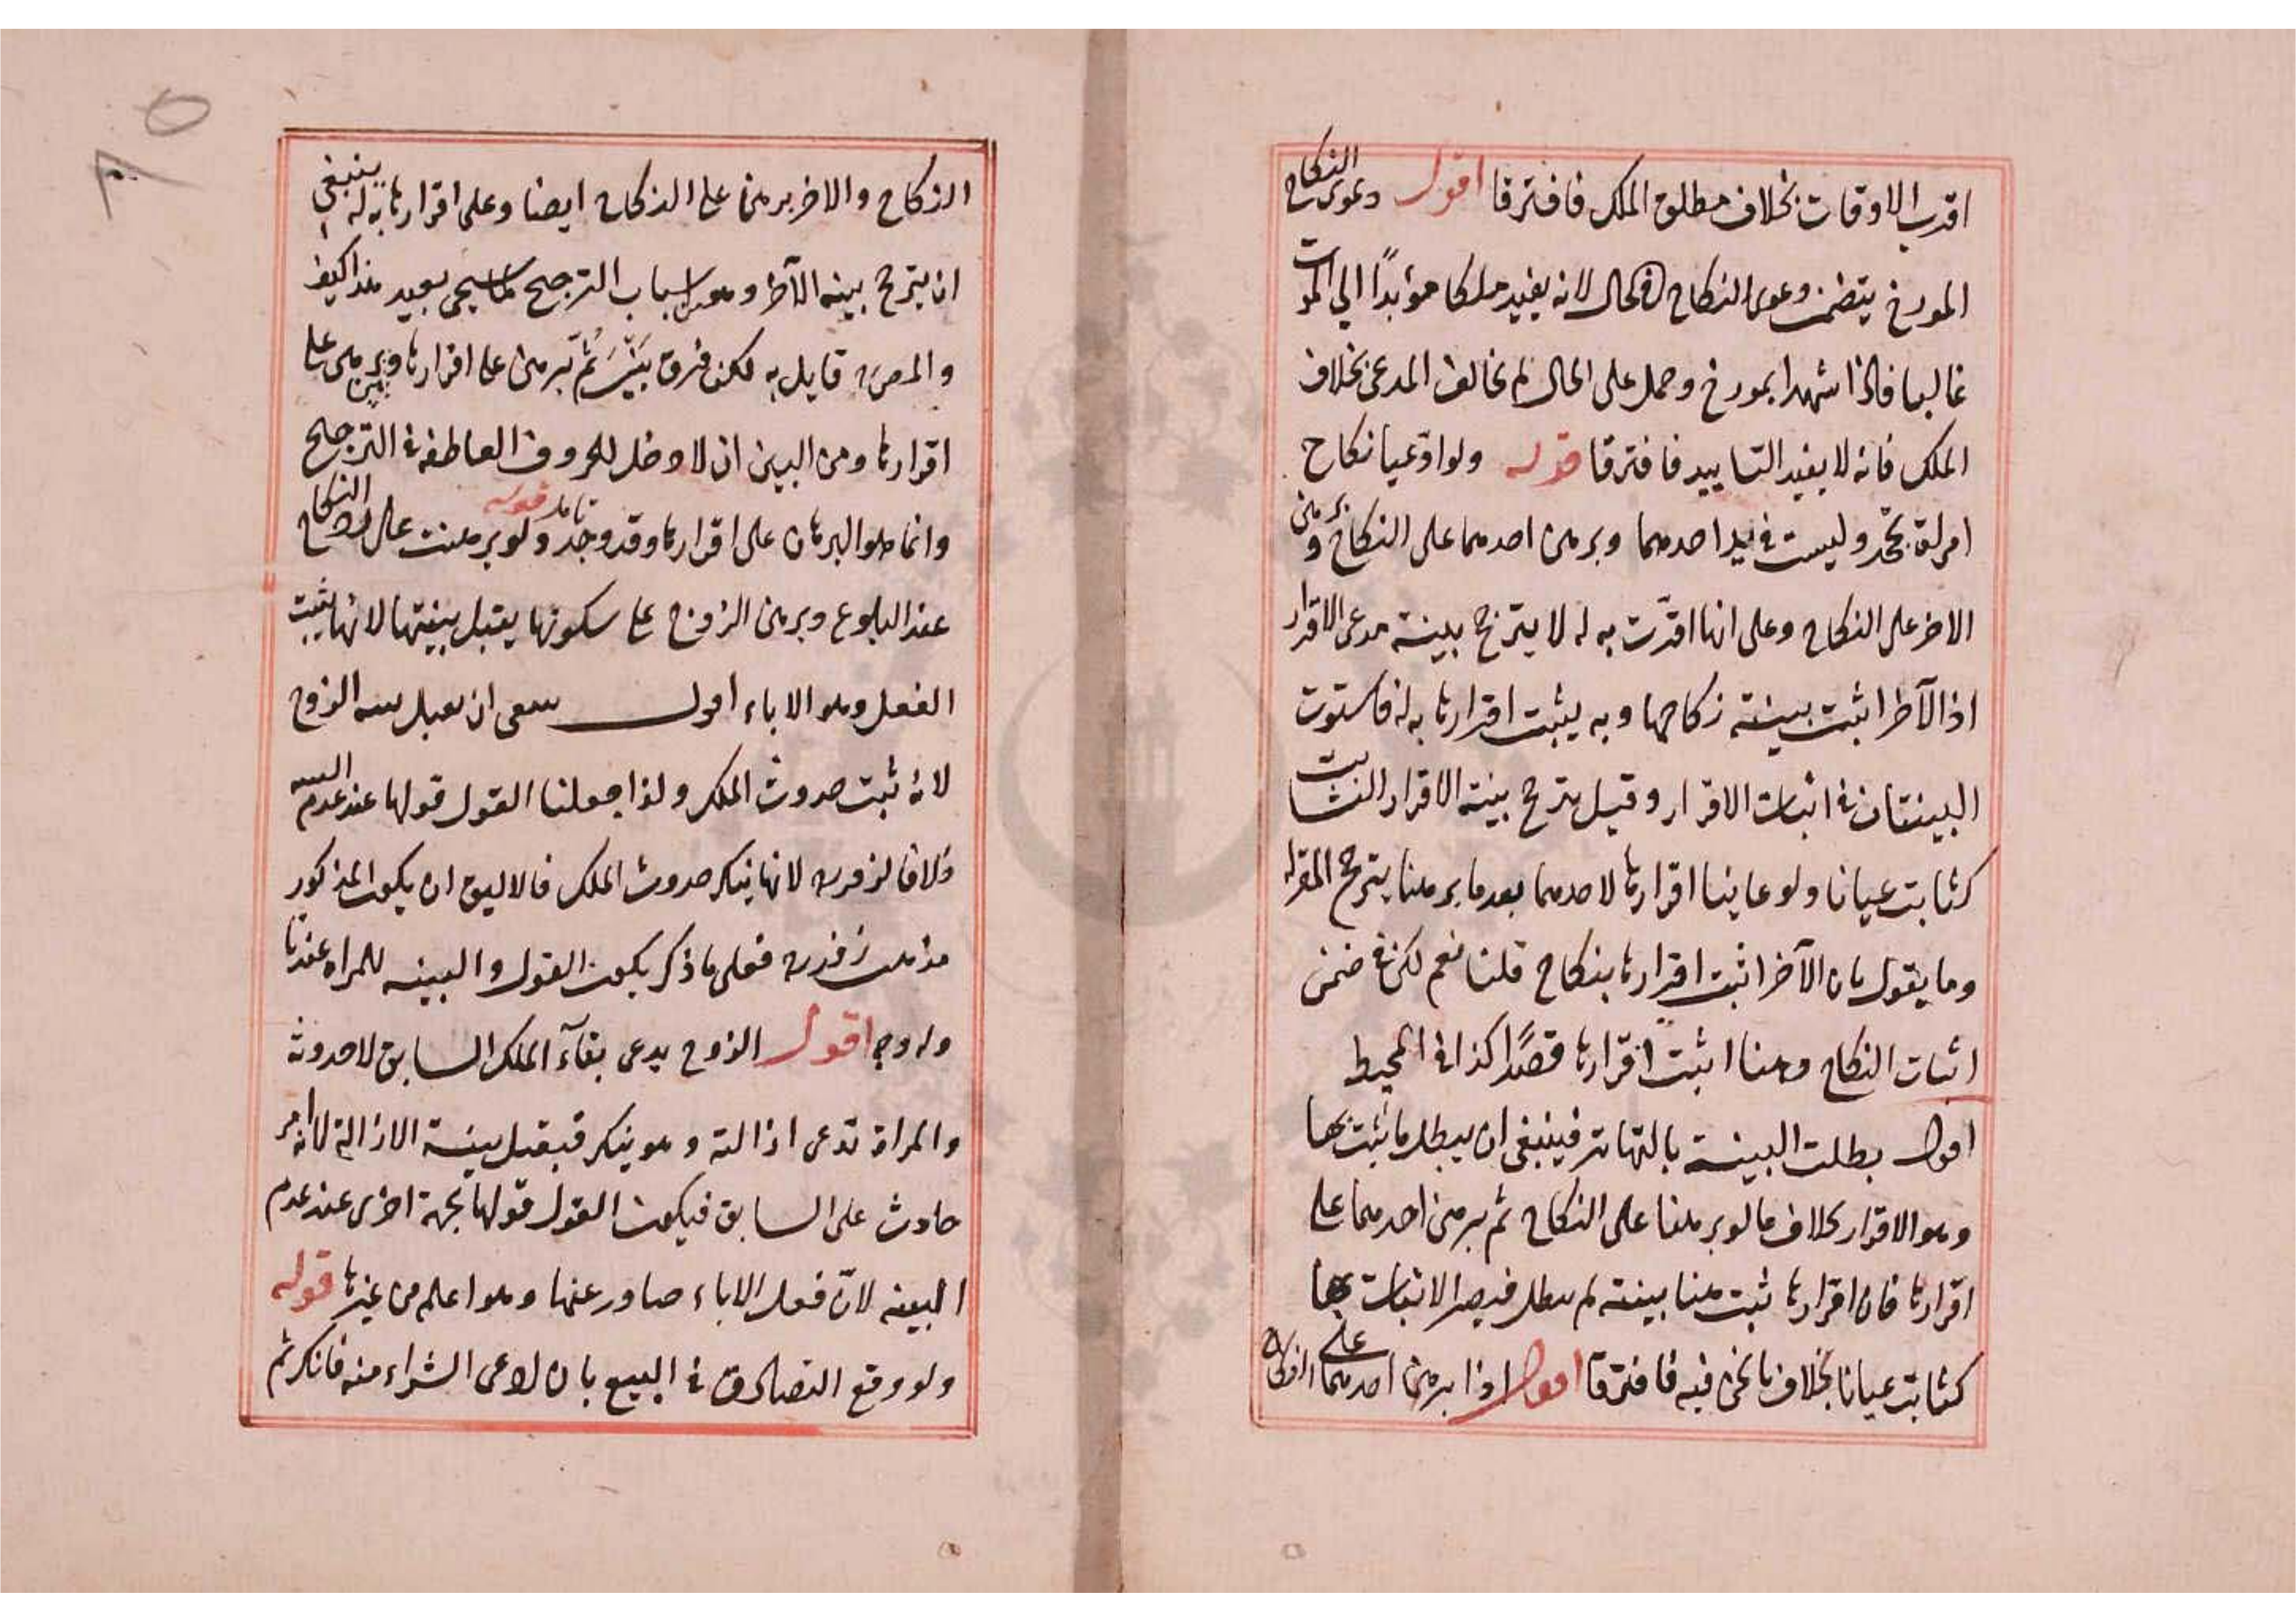 اقرب الاوقات بخلاف مطلق الملك فافترقا اقول دعوى النكاح
المورخ يتضمن دعوى النكاح في الحال لانه يفيد ملكا مؤبدًا الى الموت
غالبا فاذا شهدا بمورخ وحمل على الحال لم يخالف المدعى بخلاف
الملك فانه لا يفيد التاييد فافترقا قوله ولو ادّعيا نكاح
امراة تجحد وليست في يد احدهما وبرهن احدهما على النكاح وبرهن
الاخر على النكاح وعلى انها اقرّت به له لا يترجح بينة مدعى الاقرار
اذ الآخر اثبت ببينة نكاحها وبه يثبت اقرارها به له فاستوت
البينتان في اثبات الاقرار وقيل يترجح بينة الاقرار الثابت
كثابت عيانا ولو عاينا اقرارها لاحدهما بعد ما برهنا يترجح المقر له
وما يقول بان الآخر اثبت اقرارها بنكاح قلنا نعم لكن في ضمن
اثبات النكاح وهنا اثبت اقرارها قصدًا كذا في المحيط
اقول بطلت البينة بالتهاتر فينبغي ان يبطل ما ثبت بها
وهو الاقرار بخلاف ما لو برهنا على النكاح ثم برهن احدهما على
اقرارها فان اقرارها ثبت هنا ببينة لم يبطل فيصر الاثبات بها
كثابت عيانا بخلاف ما نحن فيه فافترقا اقول اذا برهن احدهما على النكاح
النكاح والاخر برهن على النكاح ايضا وعلى اقرارها به له ينبغي
ان يترجح بينة الآخر وهو من اسباب الترجيح كما سيجي بعيد هذا كيف
والمص قايل به لكن فرق بَيْنَ ثُمّ برهن على اقرارها وبين برهن على
اقرارها ومن البين ان لا دخل للحروف العاطفة في الترجيح
وانما هو البرهان على اقرارها وقد وجد تامل قوله ولو برهنت على رد النكاح
عند البلوغ وبرهن الزوج على سكوتها يقبل بينتها لانها يثبت
الفعل وهو الاباء اقول ينبغي ان يقبل بينة الزوج
لانه ثبت حدوث الملك ولذا جعلنا القول قولها عند عدم البينة
خلافا لزفر لانها ينكر حدوث الملك فالاليق ان يكون المذكور
مذهب زفر فعلى ما ذكر يكون القول والبينه للمراه عندنا
وله وجه اقول الزوج يدعى بقآء الملك السابق لا حدوثه
والمراة تدعى ازالته وهو ينكر فيقبل بينة الازالة لانه امر
حادث على السابق فيكون القول قولها بجهة اخرى عند عدم
البينه لانّ فعل الاباء صادر عنها وهو اعلم من غيرها قوله
ولو وقع التصادق في البيع بان ادعى الشراء منه فانكر ثم